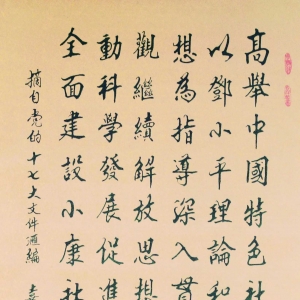 高舉中國特色社
以鄧小平理論和
想為指導深入貫
觀繼續解放思想
動科學發展促進
全面建設小康社
摘自党的十七大文件汇編